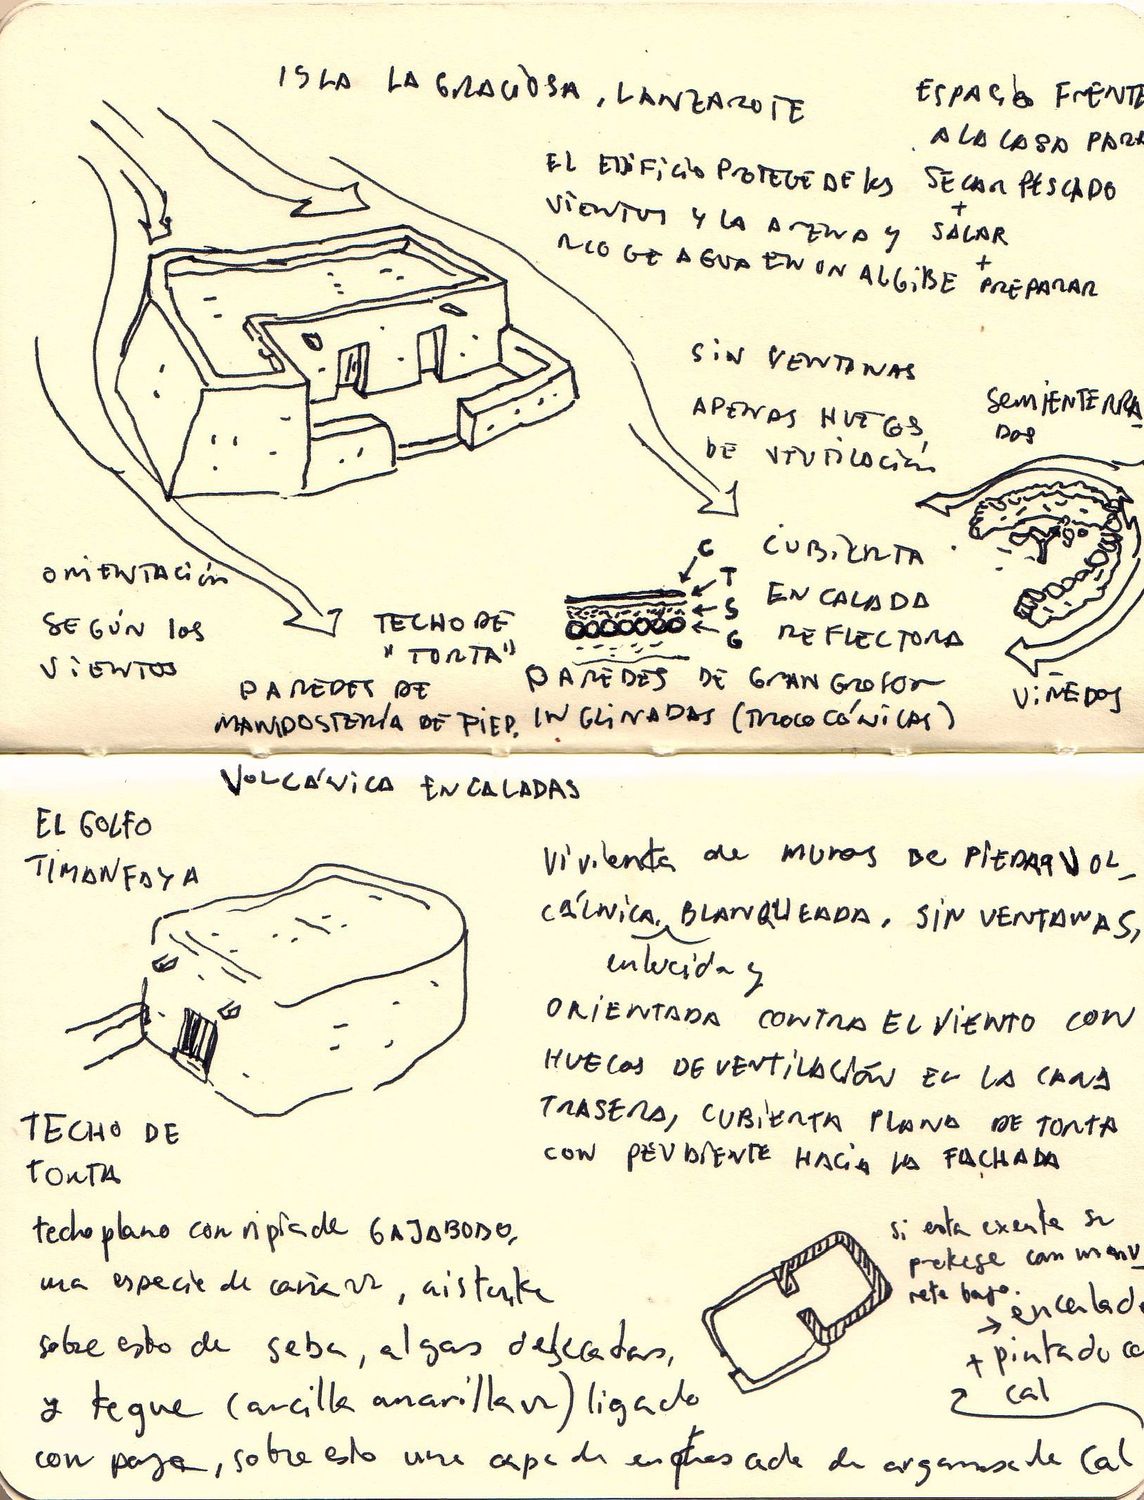 ISLA LA GRACIOSA, LANZAROTE
EL EDIFICIO PROTEGE DE los
VIENTOS Y LA ARENA Y
RECOGE AGUA EN UN ALGIBE
ESPACIO FRENTE
A LA CASA PARA
SECAR PESCADO
+
SALAR
+
PREPARAR
SIN VENTANAS
APENAS HUECOS
DE VENTILACIÓN
SEMIENTERRA
DOS
VIÑEDOS
CUBIERTA
ENCALADA
REFLECTORA
C
T
S
G
ORIENTACIÓN
SEGÚN los
VIENTOS
TECHO DE
"TORTA"
PAREDES DE GRAN GROSOR
INCLINADAS (TROCOCÓNICAS)
PAREDES DE
MAMPOSTERÍA DE PIED.
VOLCÁNICA ENCALADAS
EL GOLFO
TIMANFAYA
Vivienda de MUROS DE PIEDRA VOL_
CÁLNICA, BLANQUEADA, SIN VENTANAS,
enlucida y
ORIENTADA CONTRA EL VIENTO CON
HUECOS DE VENTILACIÓN EN LA CARA
TRASERA, CUBIERTA PLANA DE TORTA
CON PENDIENTE HACIA LA FACHADA
TECHO DE
TORTA
techo plano con ripia de GAJABOBO,
una especie de caña vz, aislante
sobre esto de seba, algas desecadas,
y tegue (arcilla amarilla vz) ligado
con paja, sobre esto una capa de enfoscado de argamasa de cal
si esta exenta se
protege con un mu
rete bajo.
→ encalado
+ pintado co
cal